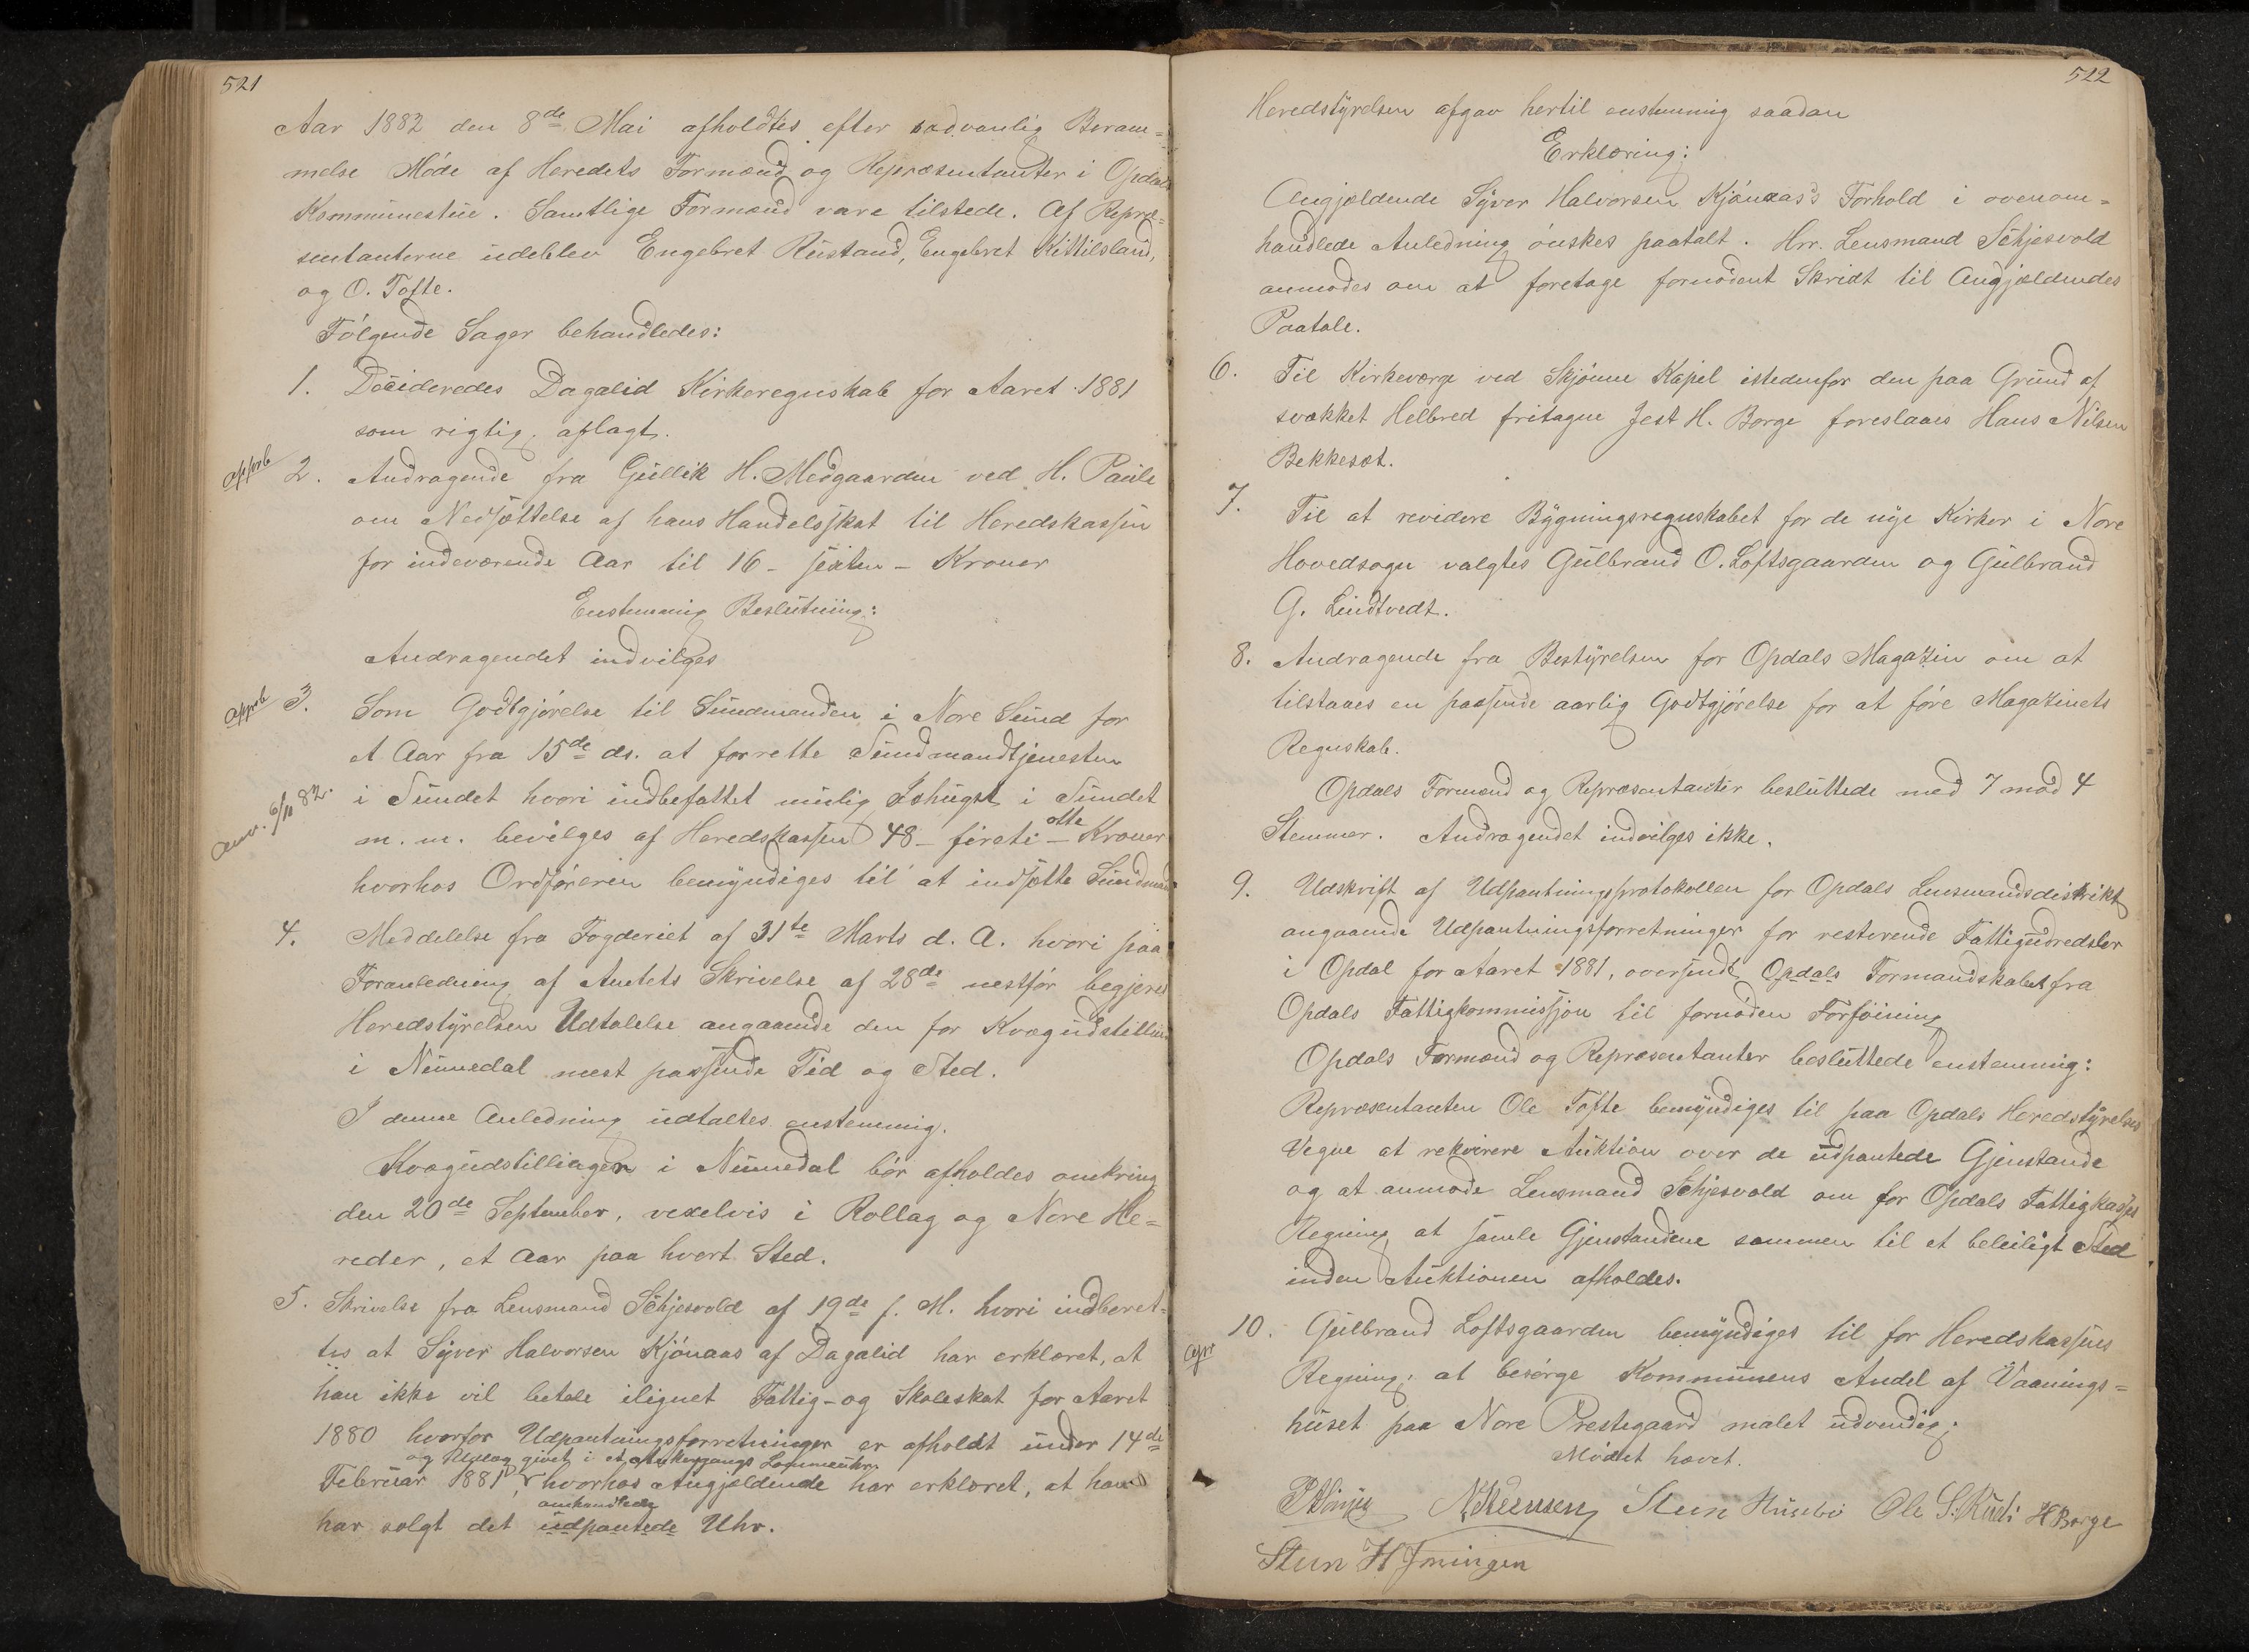 521
Aar 1882 den 8de Mai afholdtes efter sædvanlig Beram=
melse Möde af Heredets Formænd og Repræsentanter i Opdals
Kommunestue. Samtlige Formænd vare tilstede. Af Repræ=
sentanterne udeblev Engebret Rustand, Engebret Kittilsland,
og O. Tofte.
Fölgende Sager behandledes:
1. Decideredes Dagalid Kirkeregnskab for Aaret 1881
som rigtig aflagt.
approb 2. Andragende fra Gullik H. Medgaarden ved H. Pauli
om Nedsættelse af hans Handelsskat til Heredskassen
for indeværende Aar til 16 - sexten - Kroner
Enstemmig Beslutning:
Andragendet indvilges
approb 3. Som Godtgjörelse til Sundmanden i Nore Sund for
et Aar fra 15de ds. at forrette Sundmandtjenesten
i Sundet hvori indbefattet mulig Ishugst i Sundet
Anv. 6/11 82.
m. m. bevilges af Heredskassen 48 - firti otte - Kroner
hvorhos Ordföreren bemyndiges til at indsætte Sundmand
4. Meddelelse fra Fogderiet af 31te Marts d. A. hvori paa
Foranledning af Amtets Skrivelse af 28de nestför begjeres
Heredstyrelsen Udtalelse angaaende den for Kvægudstilling
i Numedal mest passende Tid og Sted.
I denne Anledning udtaltes enstemmig.
Kvægudstillingen i Numedal bör afholdes omkring
den 20de September, vexelvis i Rollag og Nore He=
reder, et Aar paa hvert Sted.
5. Skrivelse fra Lensmand Schjesvold af 19de f. M. hvori indberet=
tes at Syver Halvorsen Kjönaas af Dagalid har erklæret, at
han ikke vil betale ilignet Fattig- og Skoleskat for Aaret
1880 hvorfor Udpantningsforretninger er afholdt under 14de
og Udlæg givet i et Lommeuhr
Februar 1881, hvorhos Angjældende har erklæret, at han
omhandlede
har solgt det udpantede Uhr.
522
Heredstyrelsen afgav hertil enstemmig saadan
Erklæring:
Angjældende Syver Halvorsen Kjönaas's Forhold i ovenom=
handlede Anledning önskes paatalt. Hrr. Lensmand Schjesvold
anmodes om at foretage fornödent Skridt til Angjældendes
Paatale.
6. Til Kirkeværge ved Skjönne Kapel istedenfor den paa Grund af
svækket Helbred fritagne Jest H. Borge foreslaaes Hans Nilsen
Bekkesæt.
7. Til at revidere Bygningsregnskabet for de nye Kirker i Nore
Hovedsogn valgtes Gulbrand O. Loftsgaarden og Gulbrand
G. Lindtvedt.
8. Andragende fra Bestyrelsen for Opdals Magazin om at
tilstaaes en passende aarlig Godtgjörelse for at före Magazinets
Regnskab.
Opdals Formænd og Repræsentanter besluttede med 7 mod 4
Stemmer. Andragendet indvilges ikke.
9. Udskrift af Udpantningsprotokollen for Opdals Lensmandsdistrikt
angaaende Udpantningsforretninger for resterende Fattigudredsler
i Opdal for Aaret 1881, oversendt Opdals Formandskabet fra
Opdals Fattigkommission til fornöden Forföining
Opdals Formænd og Repræsentanter besluttede enstemmig:
Repræsentanten Ole Tofte bemyndiges til paa Opdals Heredstyrelses
Vegne at rekvirere Auktion over de udpantede Gjenstande
og at anmode Lensmand Schjesvold om for Opdals Fattigkasses
Regning at samle Gjenstandene sammen til et beleiligt Sted
inden Auktionen afholdes.
10. Gulbrand Loftsgaarden bemyndiges til for Heredskassens
apr
Regning at besörge Kommunens Andel af Vaanings=
huset paa Nore Prestegaard malet udvendig.
Mödet hævet.
Steen Husebö Ole S. Rudi H Borge
Steen H Joningen